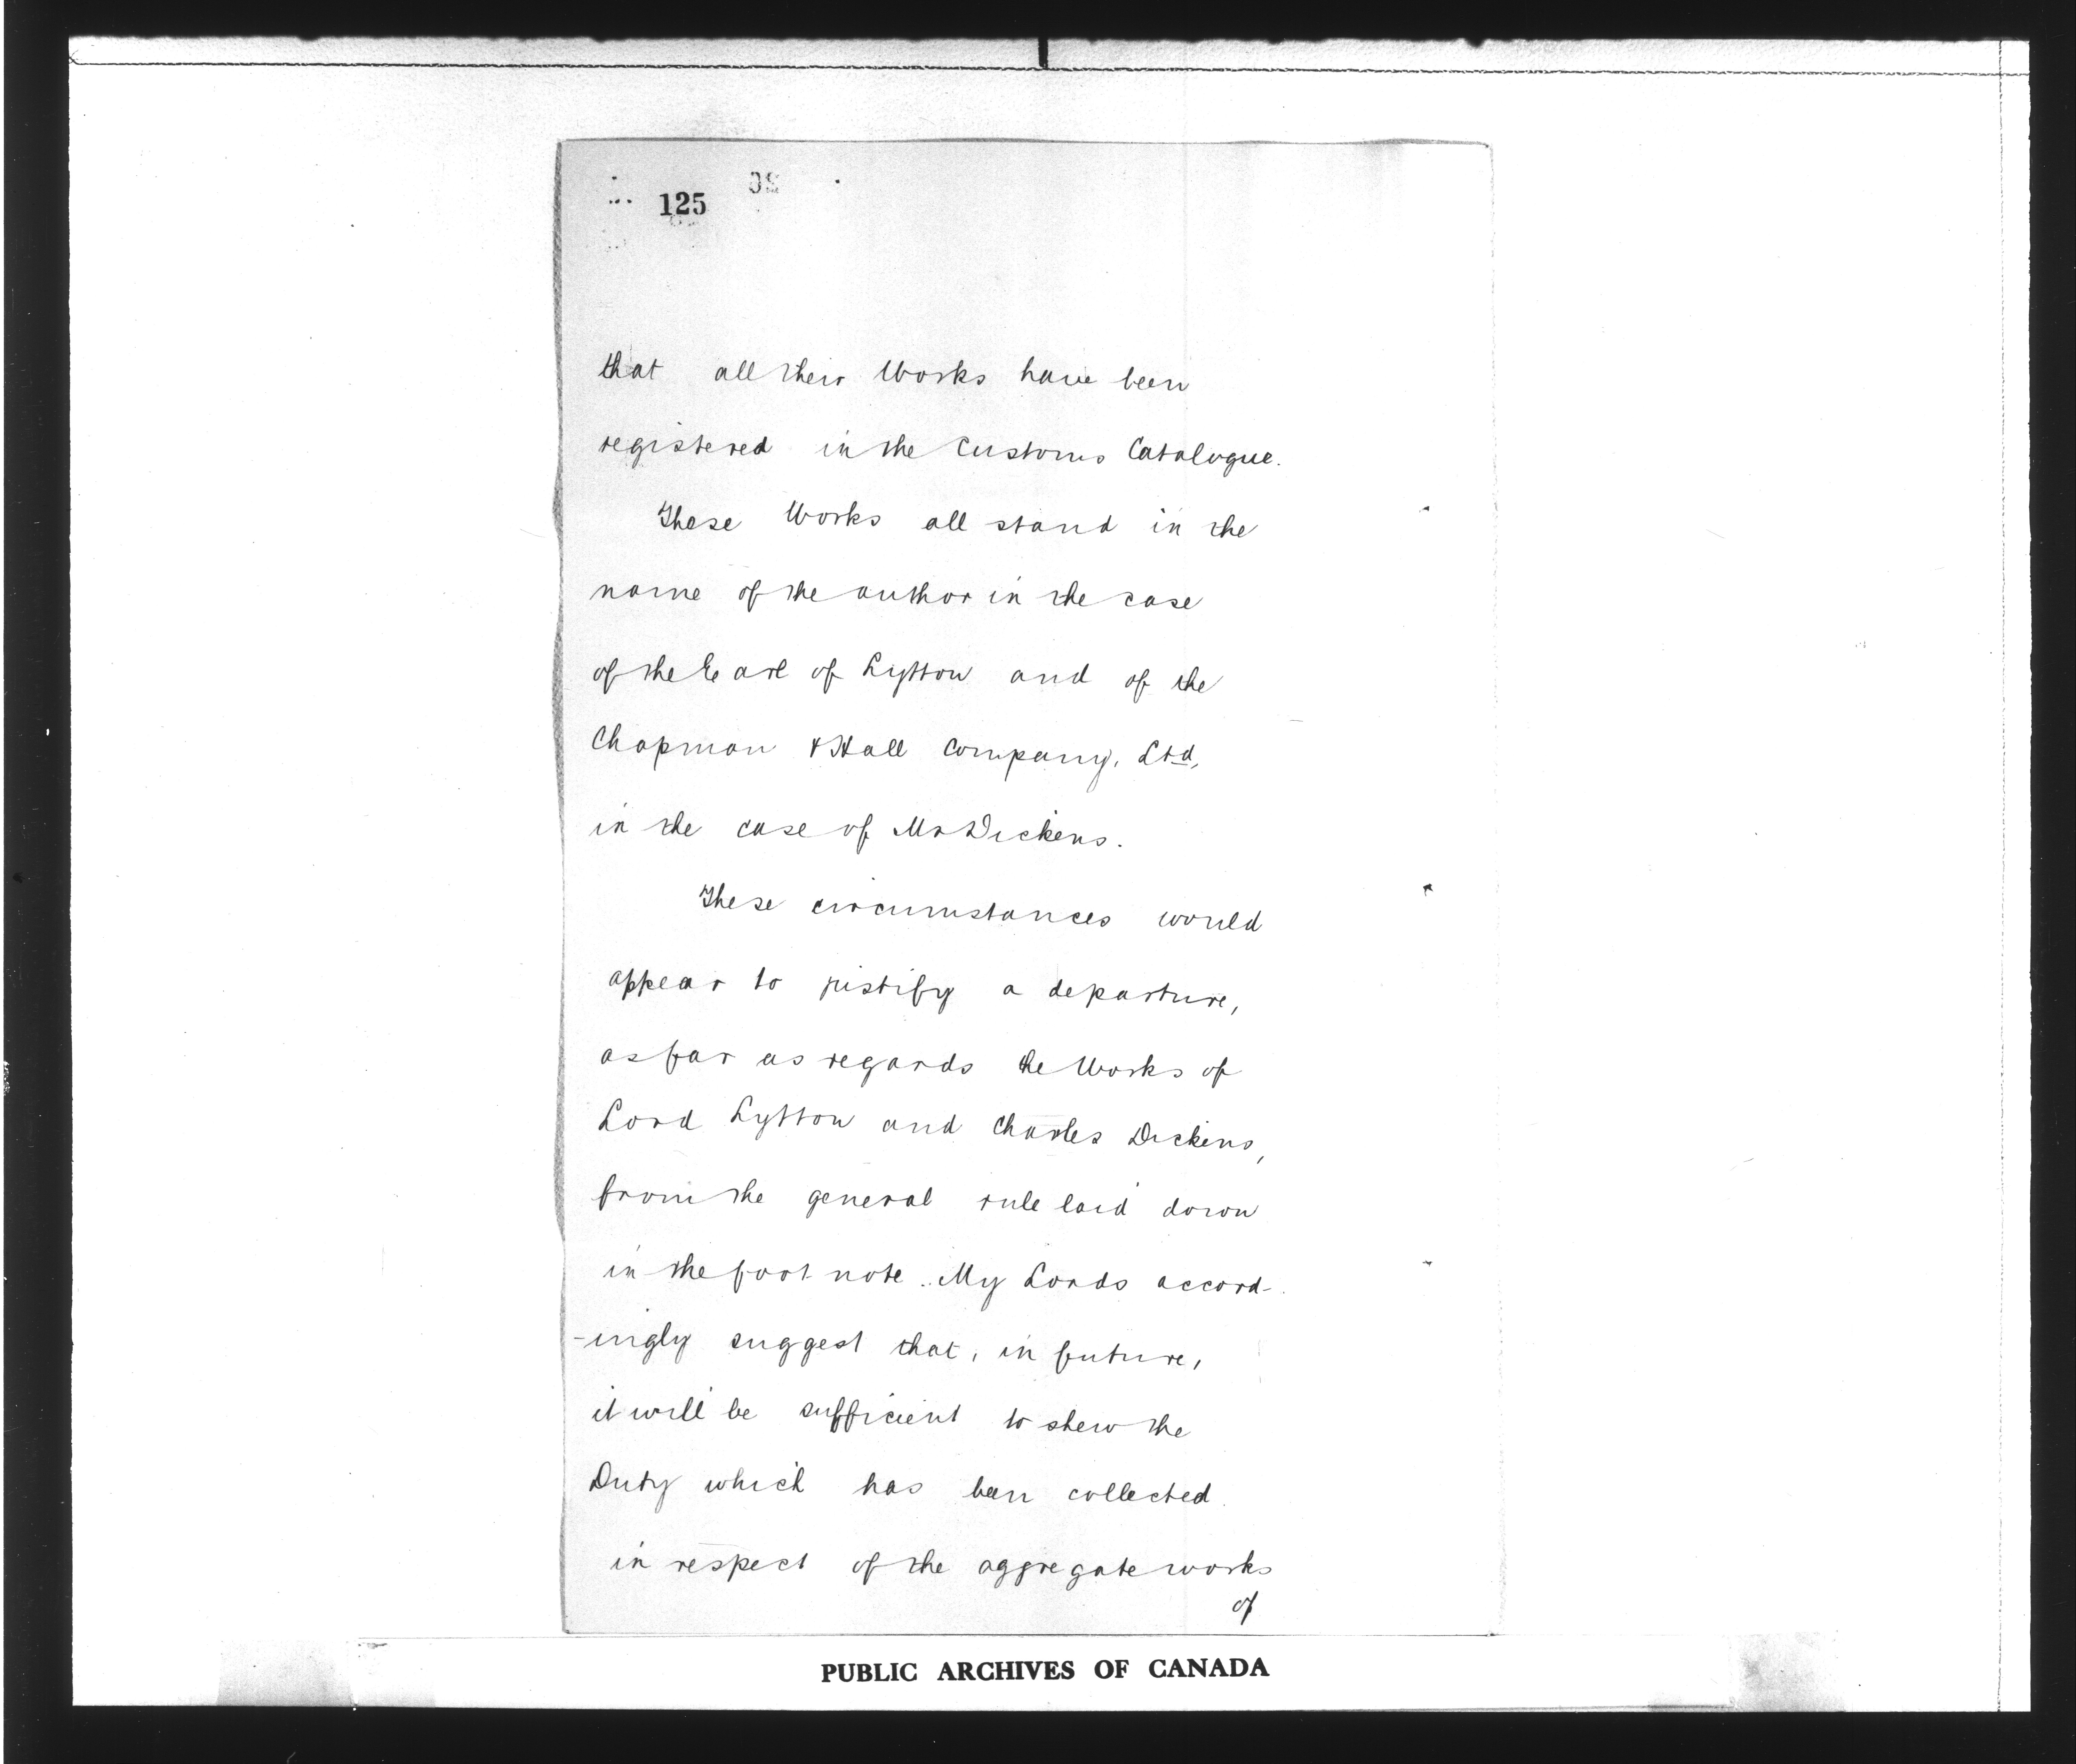 125
that all their Works have been
registered in the Customs Catalogue.
These Works all stand in the
name of the author in the case
of the Earl of Lytton and of the
Chapman & Hall Company, Ltd,
in the case of Mr Dickens.
These circumstances would
appear to justify a departure,
as far as regards the Works of
Lord Lytton and Charles Dickens,
from the general rule laid down
in the foot note. My Lords accord-
-ingly suggest that, in future,
it will be sufficient to shew the
Duty which has been collected
in respect of the aggregate works
of
PUBLIC ARCHIVES OF CANADA